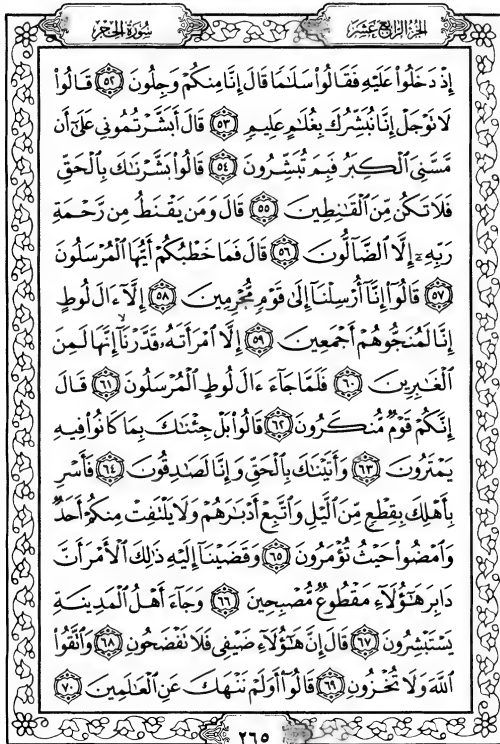 سُورَةُ الحِجْرِ
الجُزْءُ الرَّابِعَ عَشَرَ
إِذْ دَخَلُوا۟ عَلَيْهِ فَقَالُوا۟ سَلَٰمًا قَالَ إِنَّا مِنكُمْ وَجِلُونَ ٥٢ قَالُوا۟
لَا تَوْجَلْ إِنَّا نُبَشِّرُكَ بِغُلَٰمٍ عَلِيمٍ ٥٣ قَالَ أَبَشَّرْتُمُونِى عَلَىٰٓ أَن
مَّسَّنِىَ ٱلْكِبَرُ فَبِمَ تُبَشِّرُونَ ٥٤ قَالُوا۟ بَشَّرْنَٰكَ بِٱلْحَقِّ
فَلَا تَكُن مِّنَ ٱلْقَٰنِطِينَ ٥٥ قَالَ وَمَن يَقْنَطُ مِن رَّحْمَةِ
رَبِّهِۦٓ إِلَّا ٱلضَّآلُّونَ ٥٦ قَالَ فَمَا خَطْبُكُمْ أَيُّهَا ٱلْمُرْسَلُونَ
٥٧ قَالُوٓا۟ إِنَّآ أُرْسِلْنَآ إِلَىٰ قَوْمٍ مُّجْرِمِينَ ٥٨ إِلَّآ ءَالَ لُوطٍ
إِنَّا لَمُنَجُّوهُمْ أَجْمَعِينَ ٥٩ إِلَّا ٱمْرَأَتَهُۥ قَدَّرْنَآ إِنَّهَا لَمِنَ
ٱلْغَٰبِرِينَ ٦٠ فَلَمَّا جَآءَ ءَالَ لُوطٍ ٱلْمُرْسَلُونَ ٦١ قَالَ
إِنَّكُمْ قَوْمٌ مُّنكَرُونَ ٦٢ قَالُوا۟ بَلْ جِئْنَٰكَ بِمَا كَانُوا۟ فِيهِ
يَمْتَرُونَ ٦٣ وَأَتَيْنَٰكَ بِٱلْحَقِّ وَإِنَّا لَصَٰدِقُونَ ٦٤ فَأَسْرِ
بِأَهْلِكَ بِقِطْعٍ مِّنَ ٱلَّيْلِ وَٱتَّبِعْ أَدْبَٰرَهُمْ وَلَا يَلْتَفِتْ مِنكُمْ أَحَدٌ
وَٱمْضُوا۟ حَيْثُ تُؤْمَرُونَ ٦٥ وَقَضَيْنَآ إِلَيْهِ ذَٰلِكَ ٱلْأَمْرَ أَنَّ
دَابِرَ هَٰٓؤُلَآءِ مَقْطُوعٌ مُّصْبِحِينَ ٦٦ وَجَآءَ أَهْلُ ٱلْمَدِينَةِ
يَسْتَبْشِرُونَ ٦٧ قَالَ إِنَّ هَٰٓؤُلَآءِ ضَيْفِى فَلَا تَفْضَحُونِ ٦٨ وَٱتَّقُوا۟
ٱللَّهَ وَلَا تُخْزُونِ ٦٩ قَالُوٓا۟ أَوَلَمْ نَنْهَكَ عَنِ ٱلْعَٰلَمِينَ ٧٠
٢٦٥